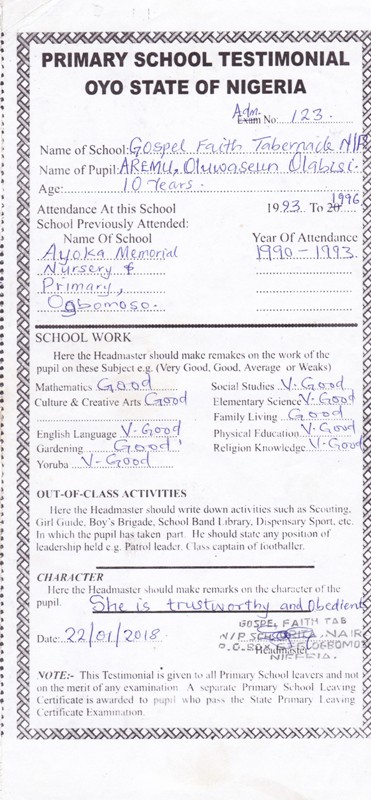 PRIMARY SCHOOL TESTIMONIAL
OYO STATE OF NIGERIA
Adm.
Exam No: 123.
Name of School: Gospel Faith Tabernacle N/P
Name of Pupil: AREMU, Oluwaseun Olabisi.
Age: 10 Years.
Attendance At this School 1993 To 20 1996
School Previously Attended:
Name of School Year Of Attendance
Ayoka Memorial 1990 - 1993
Nursery &
Primary,
Ogbomoso.
SCHOOL WORK
Here the Headmaster should make remakes on the work of the
pupil on these Subject e.g. (Very Good, Good, Average or Weaks)
Mathematics Good Social Studies V. Good
Culture & Creative Arts Good Elementary Science V. Good
Family Living Good
English Language V. Good Physical Education V. Good
Gardening Good Religion Knowledge V. Good
Yoruba V. Good
OUT-OF-CLASS ACTIVITIES
Here the Headmaster should write down activities such as Scouting,
Girl Guide, Boy's Brigade, School Band Library, Dispensary Sport, etc.
In which the pupil has taken part. He should state any position of
leadership held e.g. Patrol leader. Class captain of footballer.
CHARACTER
Here the Headmaster should make remarks on the character of the
pupil. She is trustworthy and Obedient
GOSPEL FAITH TAB
Date: 22/01/2018 N/P
P.O. BOX OGBOMO
Headmaster
NIGERIA.
NOTE:- This Testimonial is given to all Primary School leavers and not
on the merit of any examination. A separate Primary School Leaving
Certificate is awarded to pupil who pass the State Primary Leaving
Certificate Examination.